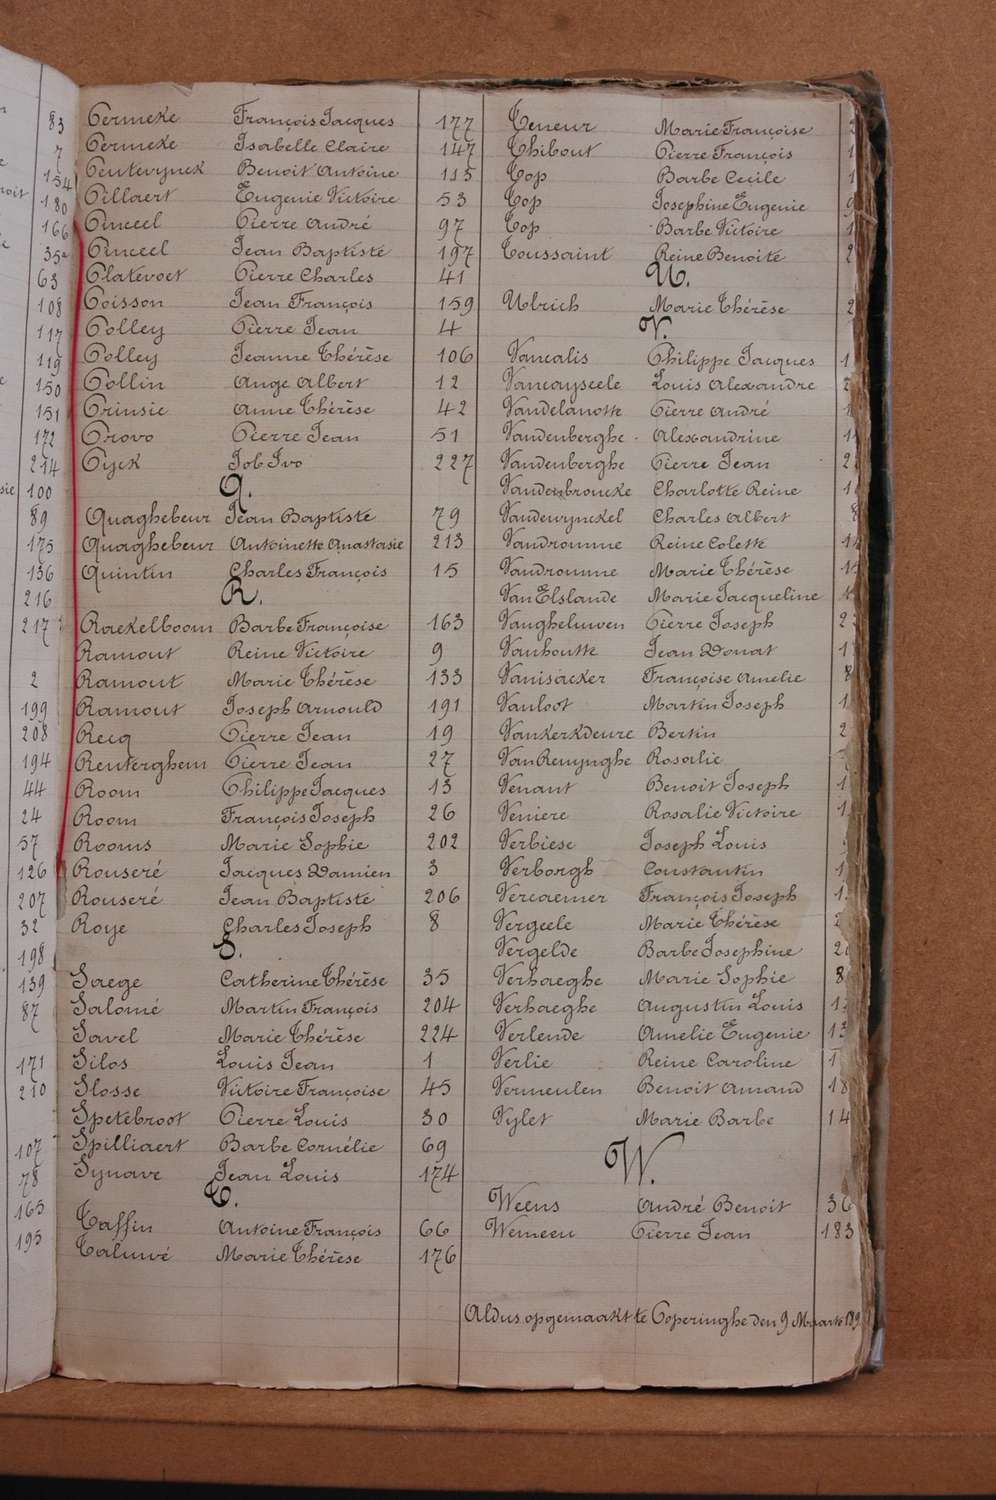 Permeke François Jacques 177
Permeke Isabelle Claire 147
Peuteuynck Benoit Antoine 115
Pillaert Eugenie Victoire 53
Pinceel Pierre André 97
Pinceel Jean Baptiste 197
Platevoet Pierre Charles 41
Poisson Jean François 159
Polley Pierre Jean 4
Polley Jeanne Thérèse 106
Pollin Ange Albert 12
Prinsie Anne Thérèse 42
Provo Pierre Jean 51
Pyck Job Ivo 227
Q.
Quaghebeur Jean Baptiste 79
Quaghebeur Antoinette Anastasie 213
Quintin Charles François 15
R.
Raekelboom Barbe Françoise 163
Ramout Reine Victoire 9
Ramout Marie Thérèse 133
Ramout Joseph Arnould 191
Recq Pierre Jean 19
Renterghem Pierre Jean 27
Room Philippe Jacques 13
Room François Joseph 26
Rooms Marie Sophie 202
Rouseré Jacques Damien 3
Rouseré Jean Baptiste 206
Roye Charles Joseph 8
S.
Saege Catherine Thérèse 35
Salomé Martin François 204
Savel Marie Thérèse 224
Silos Louis Jean 1
Slosse Victoire Françoise 45
Spetebroot Pierre Louis 30
Spilliaert Barbe Cornélie 69
Synave Jean Louis 174
T.
Taffin Antoine François 66
Taluwé Marie Thérèse 176
Teneur Marie Françoise
Thibout Pierre François
Top Barbe Cecile
Top Josephine Eugenie
Top Barbe Victoire
Toussaint Reine Benoite
U.
Ulrich Marie Thérèse
V.
Vancalis Philippe Jacques
Vancayseele Louis Alexandre
Vandelanotte Pierre André
Vandenberghe Alexandrine
Vandenberghe Pierre Jean
Vandenbroucke Charlotte Reine
Vandewynckel Charles Albert
Vandromme Reine Colette
Vandromme Marie Thérèse
Van Elslande Marie Jacqueline
Vangheluwen Pierre Joseph
Vanhoutte Jean Donat
Vanisacker Françoise Amelie
Vanloot Martin Joseph
Vankerkdeure Bertin
Van Renynghe Rosalie
Venant Benoit Joseph
Veniere Rosalie Victoire
Verbiese Joseph Louis
Verborgh Constantin
Vercaemer François Joseph
Vergeele Marie Thérèse
Vergelde Barbe Josephine
Verhaeghe Marie Sophie
Verhaeghe Augustin Louis
Verlende Amelie Eugenie
Verlie Reine Caroline
Vermeulen Benoit Amand
Vylet Marie Barbe
W.
Weens André Benoit 36
Wemeeu Pierre Jean 183
Aldus opgemaakt te Poperinghe den 9 Maarte
83
7
154
180
166
35a
63
108
117
119
150
151
172
214
100
89
175
136
216
217
2
199
208
194
44
24
57
126
207
32
198
139
87
171
210
107
78
165
195